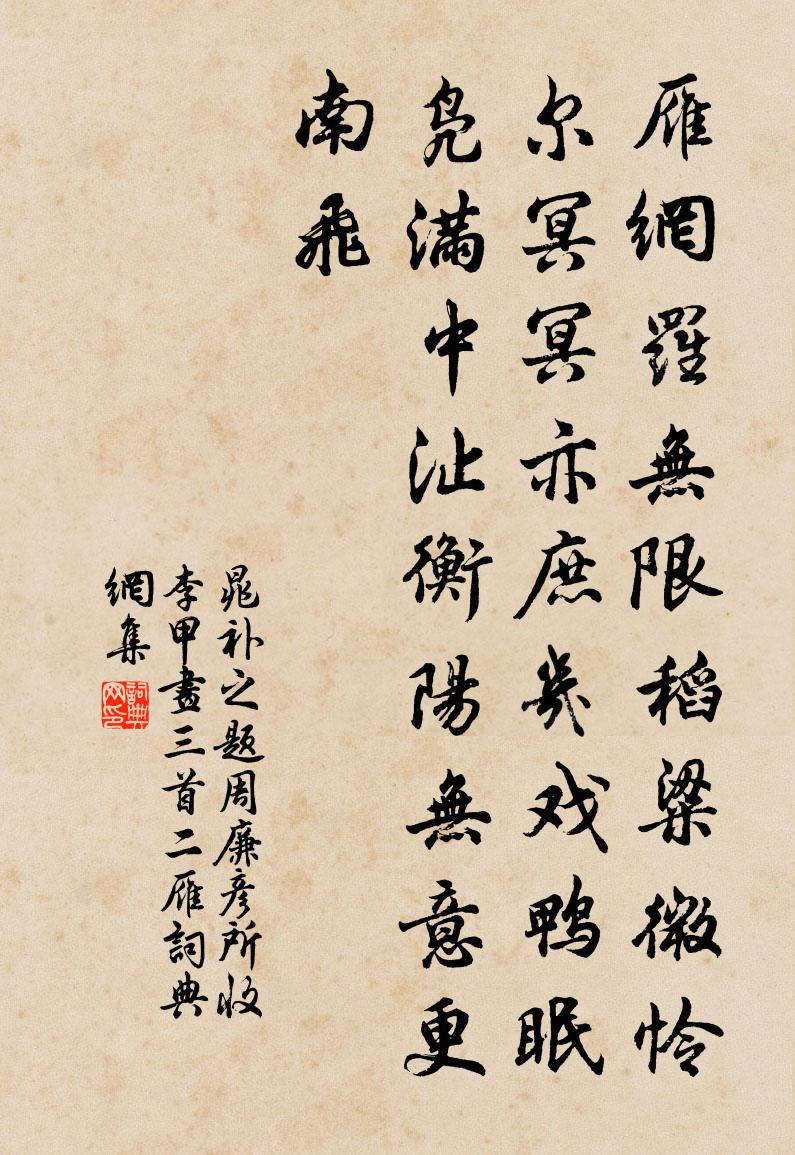 雁網羅無限稻粱微怜
尔冥冥亦庶幾戏鴨眠
凫滿中沚衡陽無意更
南飛
晁补之题周廉彦所收
李甲畫三首二雁詞典
網集
詞典
网印